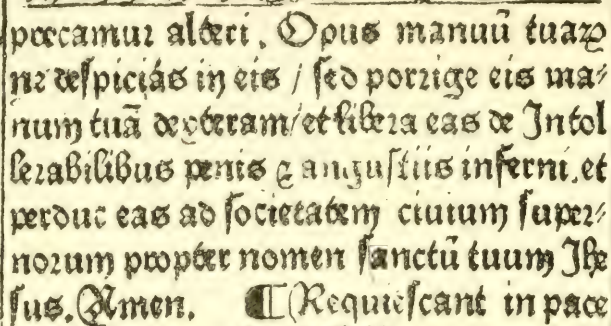 precamur alteri. Opus manuū tuaꝝ
ne despicias in eis / sed porrige eis ma⸗
num tuā dexteram / et libera eas de Intol
lerabilibus penis ⁊ angustiis inferni. et
perduc eas ad societatem ciuium super⸗
norum propter nomen sanctū tuum Jhe
sus. Amen. ¶ Requiescant in pace